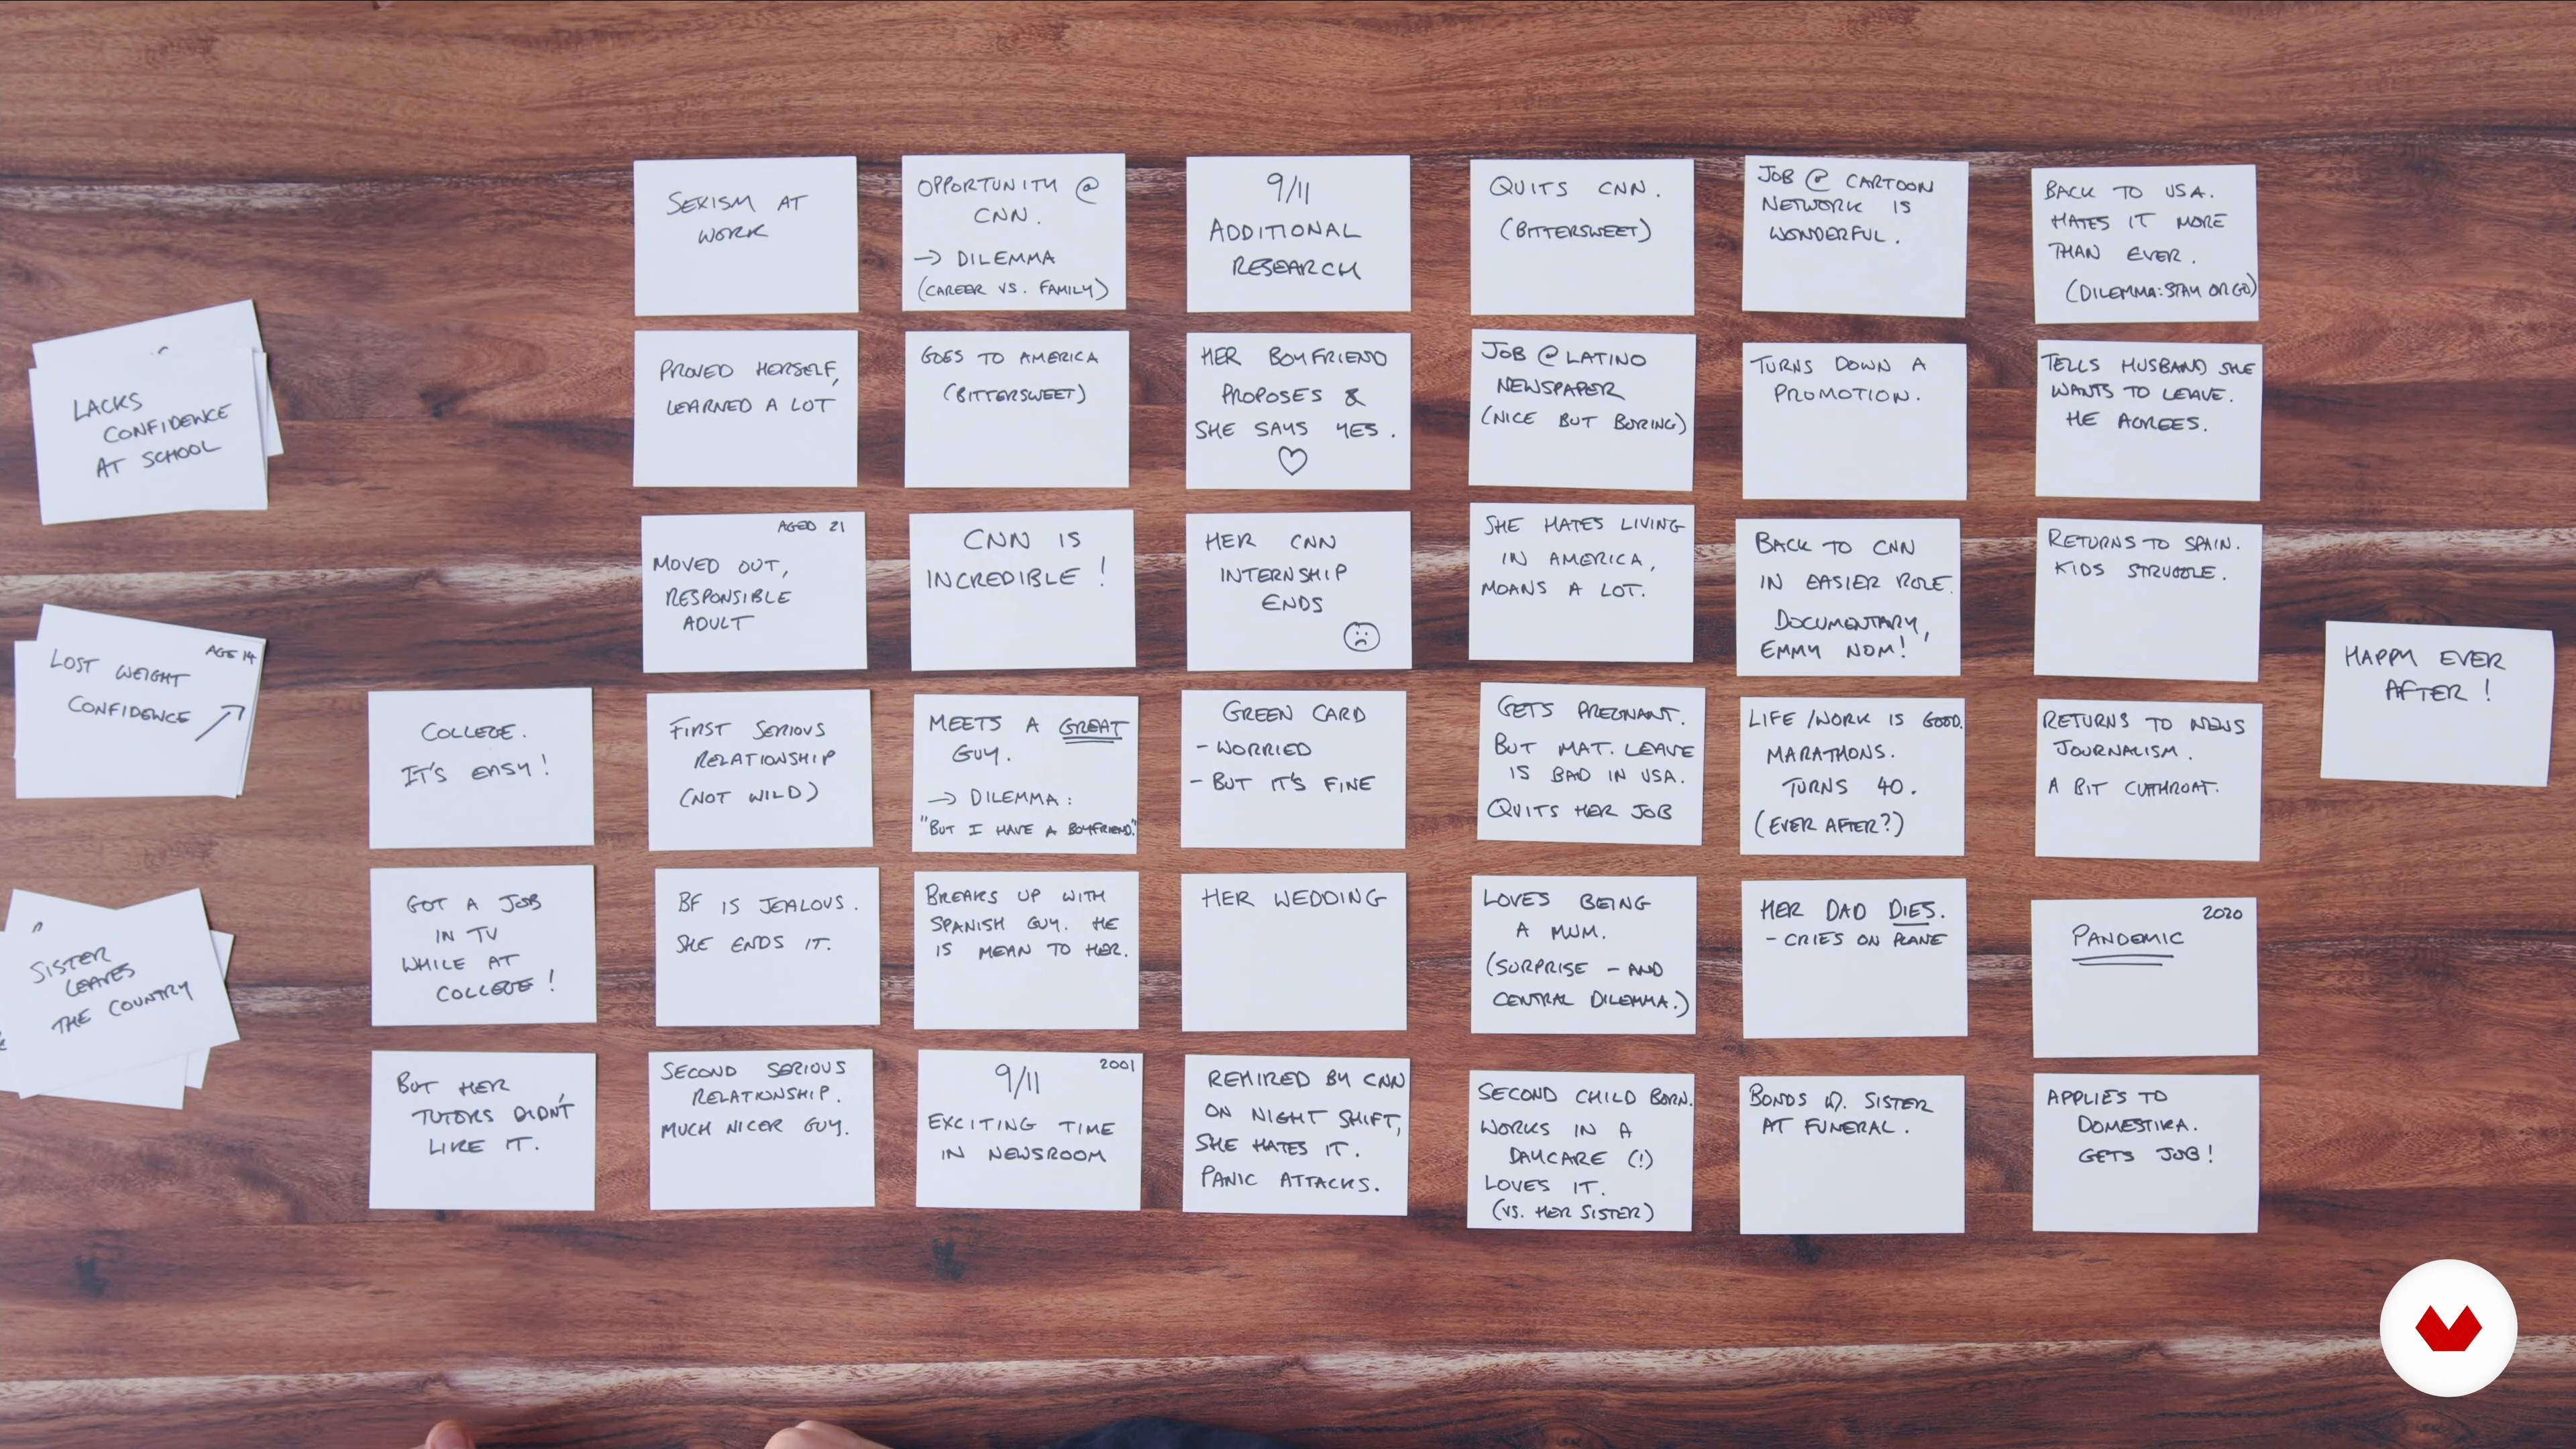 LACKS
CONFIDENCE
AT SCHOOL
AGE 14
LOST WEIGHT
CONFIDENCE
SISTER
LEAVES
THE COUNTRY
COLLEGE.
IT'S EASY!
GOT A JOB
IN TV
WHILE AT
COLLEGE!
BUT HER
TUTORS DIDN'T
LIKE IT.
SEXISM AT
WORK
PROVED HERSELF,
LEARNED A LOT
AGED 21
MOVED OUT,
RESPONSIBLE
ADULT
FIRST SERIOUS
RELATIONSHIP
(NOT WILD)
BF IS JEALOUS.
SHE ENDS IT.
SECOND SERIOUS
RELATIONSHIP.
MUCH NICER GUY.
OPPORTUNITY @
CNN.
→ DILEMMA
(CAREER VS. FAMILY)
GOES TO AMERICA
(BITTERSWEET)
CNN IS
INCREDIBLE!
MEETS A GREAT
GUY.
→ DILEMMA:
"BUT I HAVE A BOYFRIEND."
BREAKS UP WITH
SPANISH GUY. HE
IS MEAN TO HER.
2001
9/11
EXCITING TIME
IN NEWSROOM
9/11
ADDITIONAL
RESEARCH
HER BOYFRIEND
PROPOSES &
SHE SAYS YES.
HER CNN
INTERNSHIP
ENDS
GREEN CARD
- WORRIED
- BUT IT'S FINE
HER WEDDING
REHIRED BY CNN
ON NIGHT SHIFT,
SHE HATES IT.
PANIC ATTACKS.
QUITS CNN.
(BITTERSWEET)
JOB @ LATINO
NEWSPAPER
(NICE BUT BORING)
SHE HATES LIVING
IN AMERICA,
MOANS A LOT.
GETS PREGNANT.
BUT MAT. LEAVE
IS BAD IN USA.
QUITS HER JOB
LOVES BEING
A MUM.
(SURPRISE - AND
CENTRAL DILEMMA.)
SECOND CHILD BORN.
WORKS IN A
DAYCARE (!)
LOVES IT.
(VS. HER SISTER)
JOB @ CARTOON
NETWORK IS
WONDERFUL.
TURNS DOWN A
PROMOTION.
BACK TO CNN
IN EASIER ROLE.
DOCUMENTARY,
EMMY NOM!
LIFE/WORK IS GOOD.
MARATHONS.
TURNS 40.
(EVER AFTER?)
HER DAD DIES.
- CRIES ON PLANE
BONDS W. SISTER
AT FUNERAL.
BACK TO USA.
HATES IT MORE
THAN EVER.
(DILEMMA: STAY OR GO)
TELLS HUSBAND SHE
WANTS TO LEAVE.
HE AGREES.
RETURNS TO SPAIN.
KIDS STRUGGLE.
RETURNS TO NEWS
JOURNALISM.
A BIT CUTTHROAT.
2020
PANDEMIC
APPLIES TO
DOMESTIKA.
GETS JOB!
HAPPY EVER
AFTER!